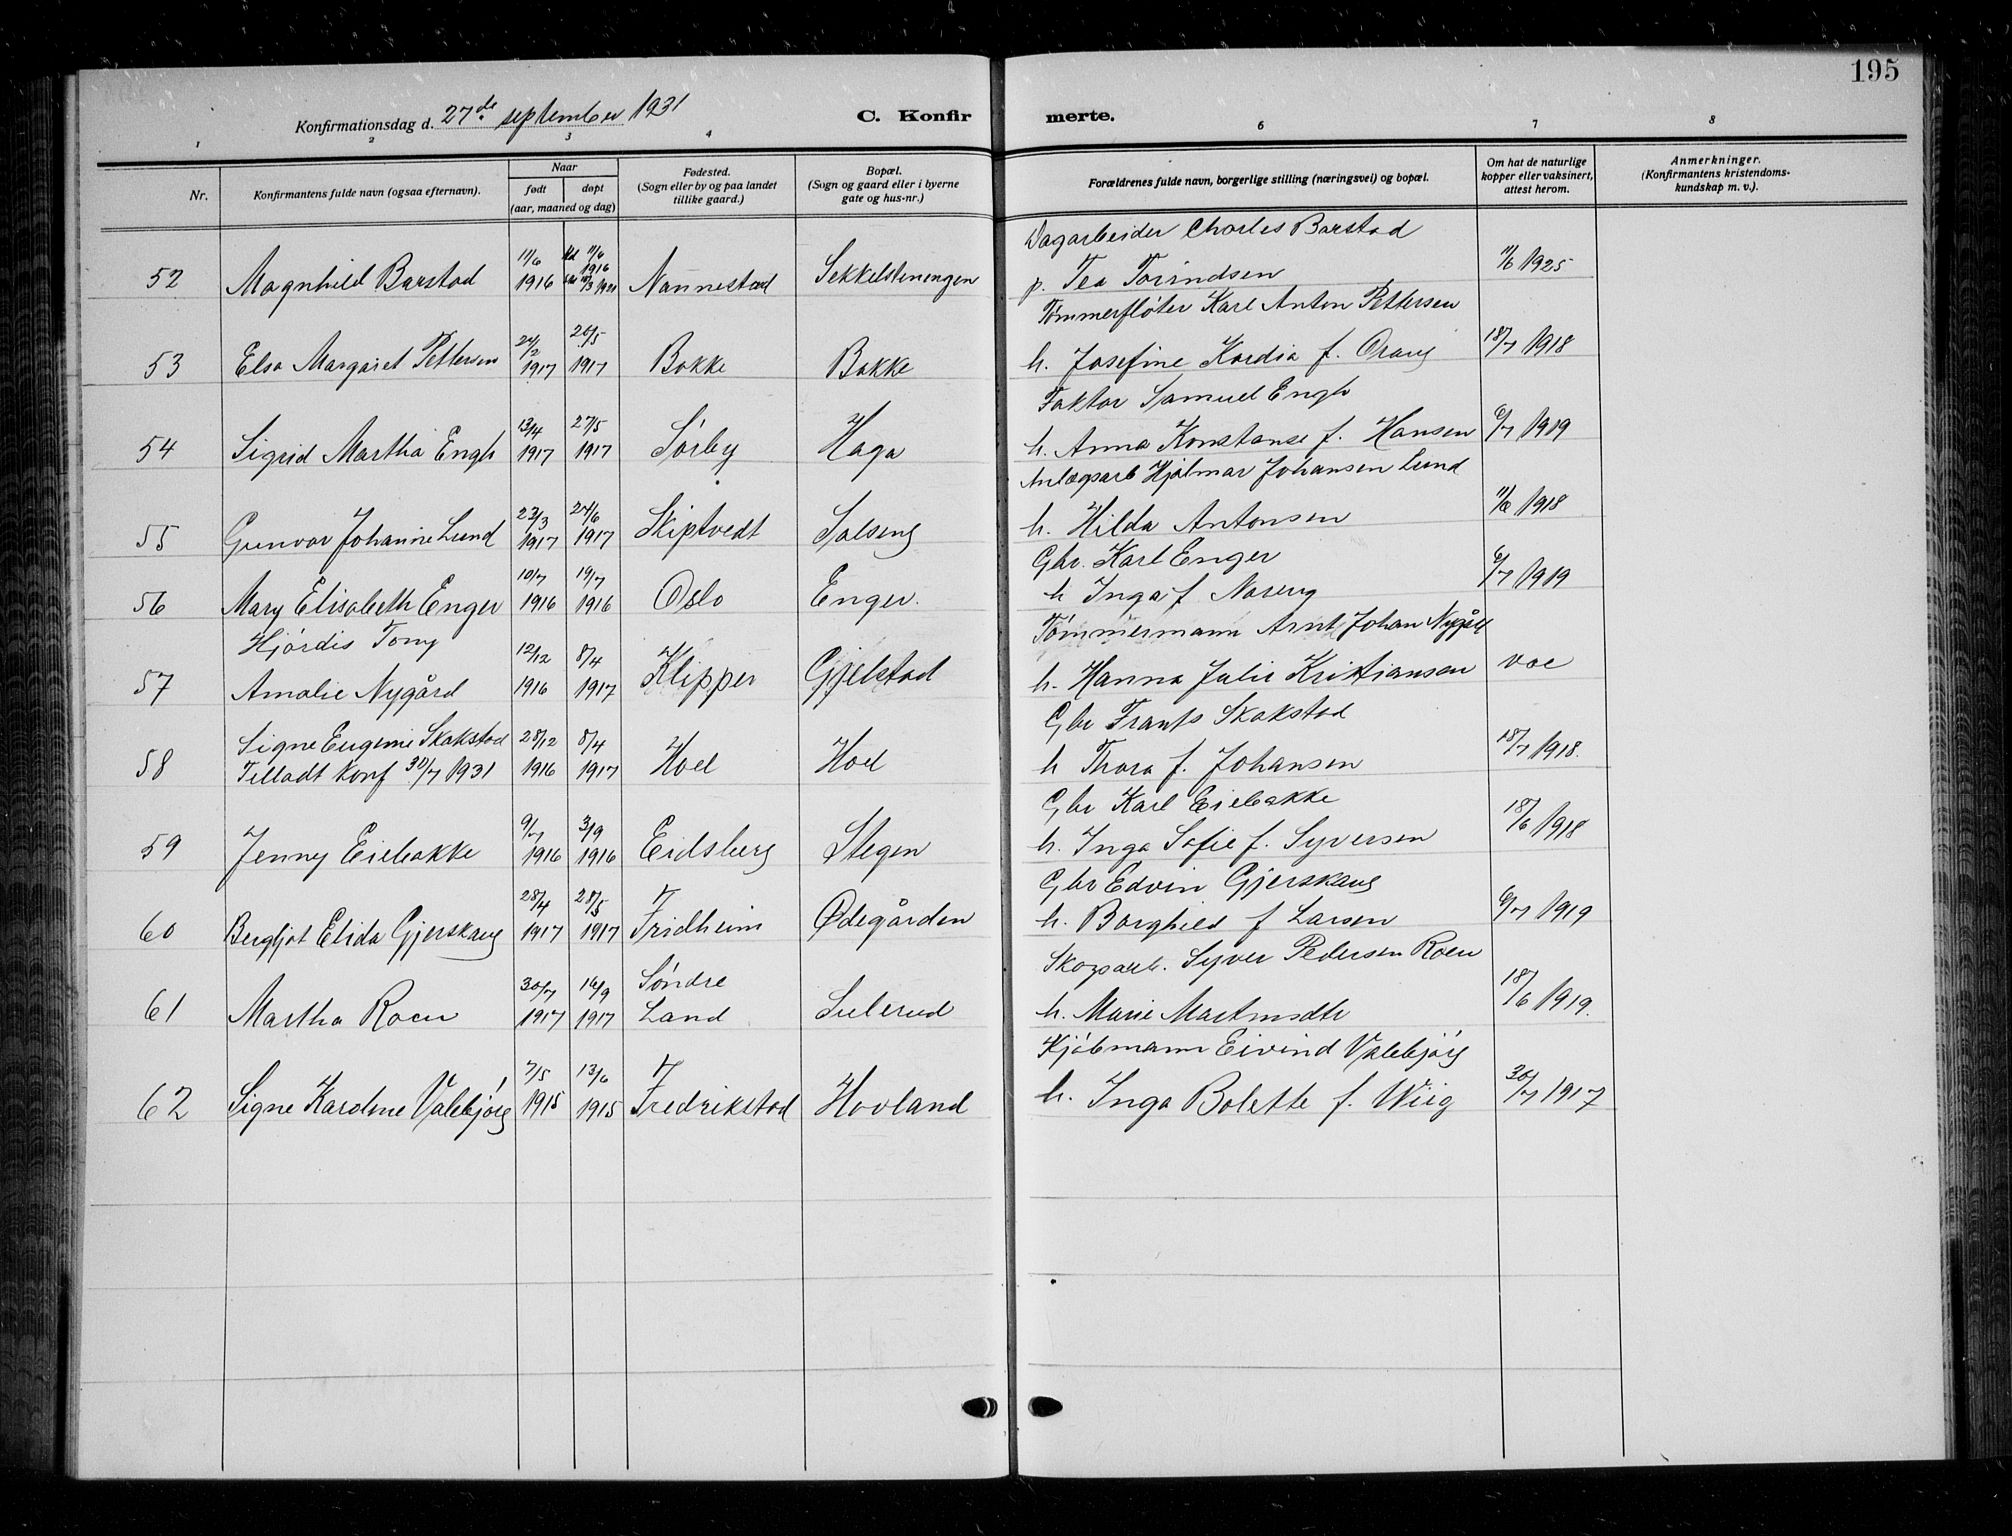 195
Konfirmationsdag d. 27de september 1931
C. Konfirmerte.
1 2 3 4 6 7 8
Nr.
Konfirmantens fulde navn (ogsaa efternavn).
Naar
født
døpt
(aar, maaned og dag)
Fødested.
(Sogn eller by og paa landet
tillike gaard.)
Bopæl.
(Sogn og gaard eller i byerne
gate og hus-nr.)
Forældrenes fulde navn, borgerlige stilling (næringsvei) og bopæl.
Om hat de naturlige
kopper eller vaksinert,
attest herom.
Anmerkninger.
(Konfirmantens kristendoms-
kundskap m. v.).
Dagarbeider Charles Barstad
52 Magnhild Barstad 11/6 1916 11/6 1916 Nannestad Sekkelstenengen p. Tea Torindsen 11/6 1925
Tømmerfløter Karl Anton Pettersen
53 Elsa Margaret Pettersen 24/2 1917 20/5 1917 Bakke Bakke h. Josefine Kardia f. Oraug 18/7 1918
Faktor Samuel Engh
54 Sigrid Martha Engh 13/4 1917 27/5 1917 Sørby Haga h. Anna Konstanse f. Hansen 6/7 1919
Anlægsarb Hjalmar Johansen Lund
55 Gunvor Johanne Lund 23/3 1917 24/6 1917 Skiptvedt Solseng h. Hilda Antonsen 11/6 1918
Gbr. Karl Enger
56 Mary Elisabeth Enger 10/7 1916 19/7 1916 Oslo Enger. h Inga f Noreng 6/7 1919
Hjørdis Tony
Tømmermann Arnt Johan Nygård
57 Amalie Nygård 12/12 1916 8/4 1917 Klipper Gjelstad h. Hanna Julie Kristiansen vac
Gbr Frants Skakstad
58 Signe Eugenie Skakstad 28/12 1916 8/4 1917 Hoel Hoel h Thora f. Johansen 18/7 1918.
Tilladt konf 30/7 1931
Gbr Karl Eiebakke
59 Jenny Eiebakke 9/7 1916 3/9 1916 Eidsberg Stegen h. Inga Sofie f. Syversen 18/6 1918
Gbr Edvin Gjerskaug
60 Bergljot Elida Gjerskaug 28/4 1917 28/5 1917 Fridheim Ødegården h. Borghild f Larsen 6/7 1919
Skogsarb. Syver Pedersen Roen
61 Martha Roen 30/7 1917 16/9 1917 Søndre Land Sulerud h. Marie Martinsdtr 18/6 1919.
Kjøbmann Eivind Valebjørg
62 Signe Karoline Valebjørg 7/5 1915 13/6 1915 Fredrikstad Hovland h. Inga Bolette f. Wiig 30/7 1917